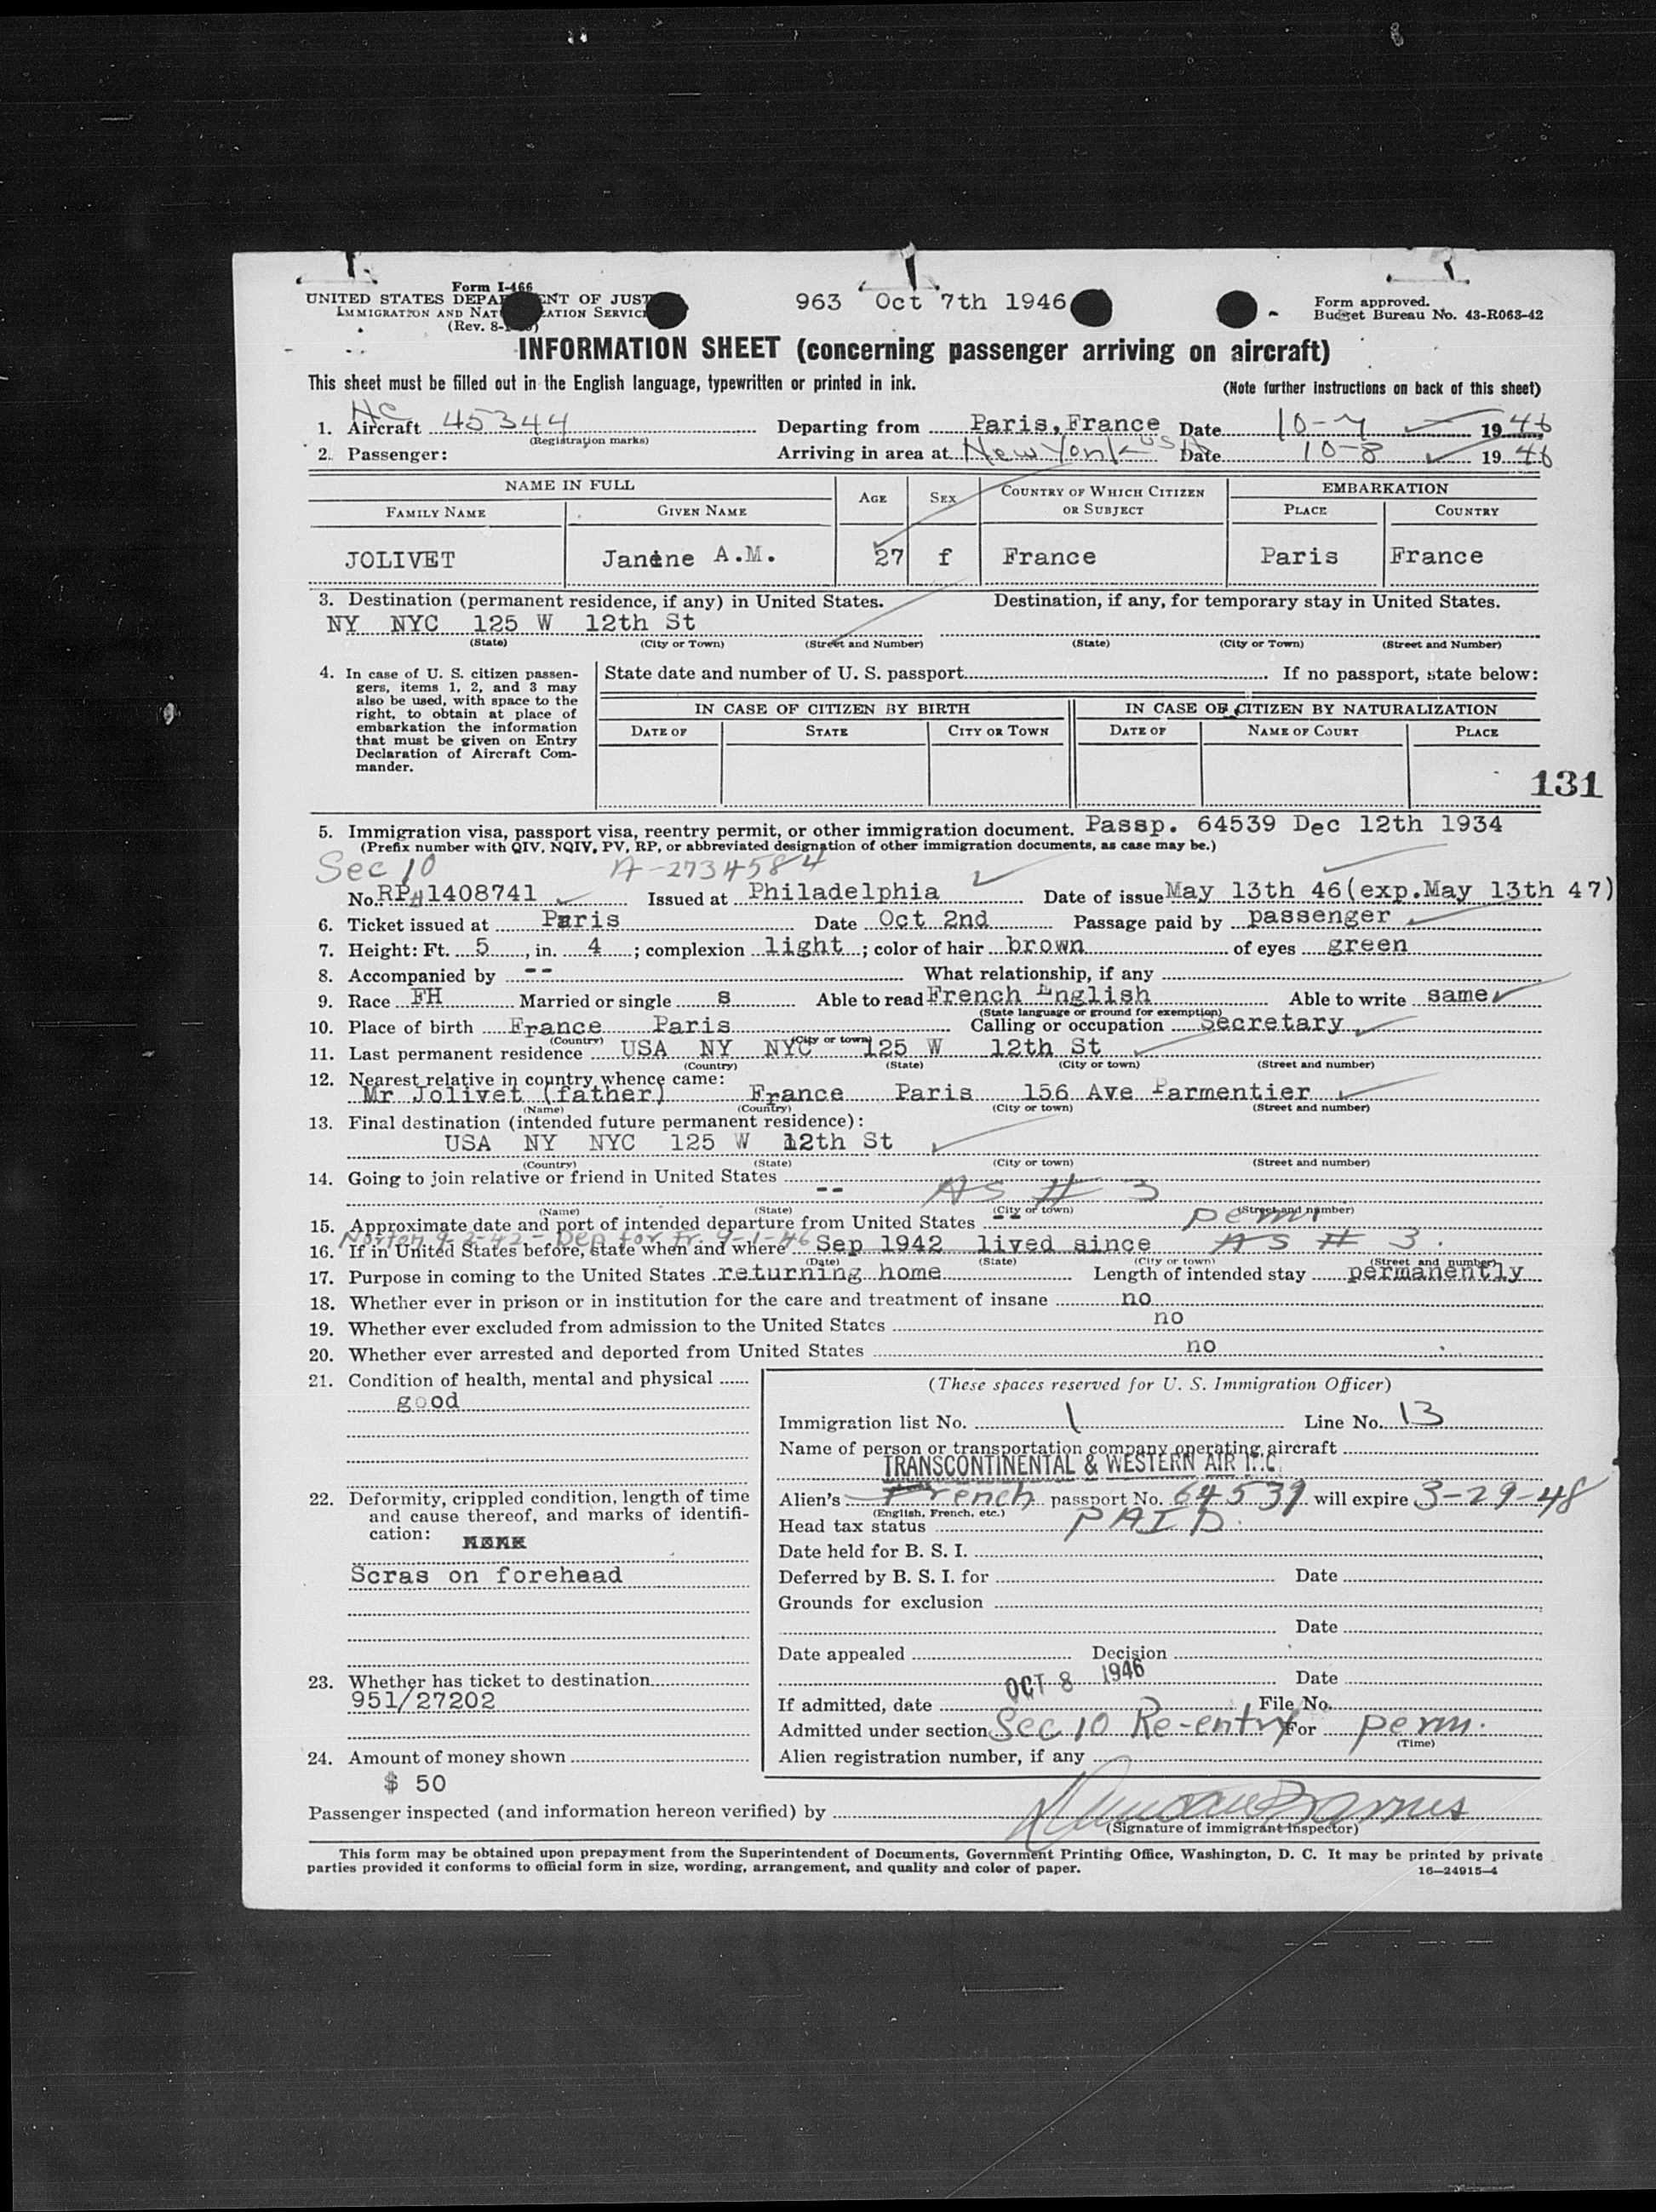 Form I-466
UNITED STATES DEPA ENT OF JUST
IMMIGRATION AND NAT ZATION SERVIC
(Rev. 8-
963 Oct 7th 1946
Form approved.
Budget Bureau No. 43-R063-42
INFORMATION SHEET (concerning passenger arriving on aircraft)
This sheet must be filled out in the English language, typewritten or printed in ink.
(Note further instructions on back of this sheet)
1. Aircraft NC 45344 Departing from Paris, France Date 10-7 1946
(Registration marks)
2. Passenger: Arriving in area at New York US Date 10-8 1946
NAME IN FULL AGE SEX COUNTRY OF WHICH CITIZEN OR SUBJECT EMBARKATION
FAMILY NAME GIVEN NAME PLACE COUNTRY
JOLIVET Janine A.M. 27 f France Paris France
3. Destination (permanent residence, if any) in United States. Destination, if any, for temporary stay in United States.
NY NYC 125 W 12th St
(State) (City or Town) (Street and Number) (State) (City or Town) (Street and Number)
4. In case of U. S. citizen passen-
gers, items 1, 2, and 3 may
also be used, with space to the
right, to obtain at place of
embarkation the information
that must be given on Entry
Declaration of Aircraft Com-
mander.
State date and number of U. S. passport If no passport, state below:
IN CASE OF CITIZEN BY BIRTH IN CASE OF CITIZEN BY NATURALIZATION
DATE OF STATE CITY OR TOWN DATE OF NAME OF COURT PLACE
131
5. Immigration visa, passport visa, reentry permit, or other immigration document. Passp. 64539 Dec 12th 1934
(Prefix number with QIV, NQIV, PV, RP, or abbreviated designation of other immigration documents, as case may be.)
Sec 10 A-2734584
No. RP#1408741 Issued at Philadelphia Date of issue May 13th 46(exp.May 13th 47)
6. Ticket issued at Paris Date Oct 2nd Passage paid by passenger
7. Height: Ft. 5, in. 4; complexion light; color of hair brown of eyes green
8. Accompanied by -- What relationship, if any
9. Race FH Married or single s Able to read French English Able to write same
(State language or ground for exemption)
10. Place of birth France Paris Calling or occupation Secretary
(Country) (City or town)
11. Last permanent residence USA NY NYC 125 W 12th St
(Country) (State) (City or town) (Street and number)
12. Nearest relative in country whence came:
Mr Jolivet (father) France Paris 156 Ave Parmentier
(Name) (Country) (City or town) (Street and number)
13. Final destination (intended future permanent residence):
USA NY NYC 125 W 12th St
(Country) (State) (City or town) (Street and number)
14. Going to join relative or friend in United States
-- AS # 3
(Name) (State) (City or town) (Street and number)
15. Approximate date and port of intended departure from United States -- perm.
9-2-42 - Dep for Fr. 9-1-46
16. If in United States before, state when and where Sep 1942 lived since AS # 3.
(Date) (State) (City or town) (Street and number)
17. Purpose in coming to the United States returning home Length of intended stay permanently
18. Whether ever in prison or in institution for the care and treatment of insane no
19. Whether ever excluded from admission to the United States no
20. Whether ever arrested and deported from United States no
21. Condition of health, mental and physical
good
22. Deformity, crippled condition, length of time
and cause thereof, and marks of identifi-
cation:
Scras on forehead
23. Whether has ticket to destination
951/27202
24. Amount of money shown
$ 50
(These spaces reserved for U. S. Immigration Officer)
Immigration list No. 1 Line No. 13
Name of person or transportation company operating aircraft
TRANSCONTINENTAL & WESTERN AIR INC
Alien's French passport No. 64539 will expire 3-29-48
(English, French, etc.)
Head tax status PAID.
Date held for B. S. I.
Deferred by B. S. I. for Date
Grounds for exclusion
Date
Date appealed Decision
Date
If admitted, date OCT 8 1946 File No.
Admitted under section Sec 10 Re-entry For perm.
(Time)
Alien registration number, if any
Passenger inspected (and information hereon verified) by
(Signature of immigrant inspector)
This form may be obtained upon prepayment from the Superintendent of Documents, Government Printing Office, Washington, D. C. It may be printed by private
parties provided it conforms to official form in size, wording, arrangement, and quality and color of paper.
16—24915-4